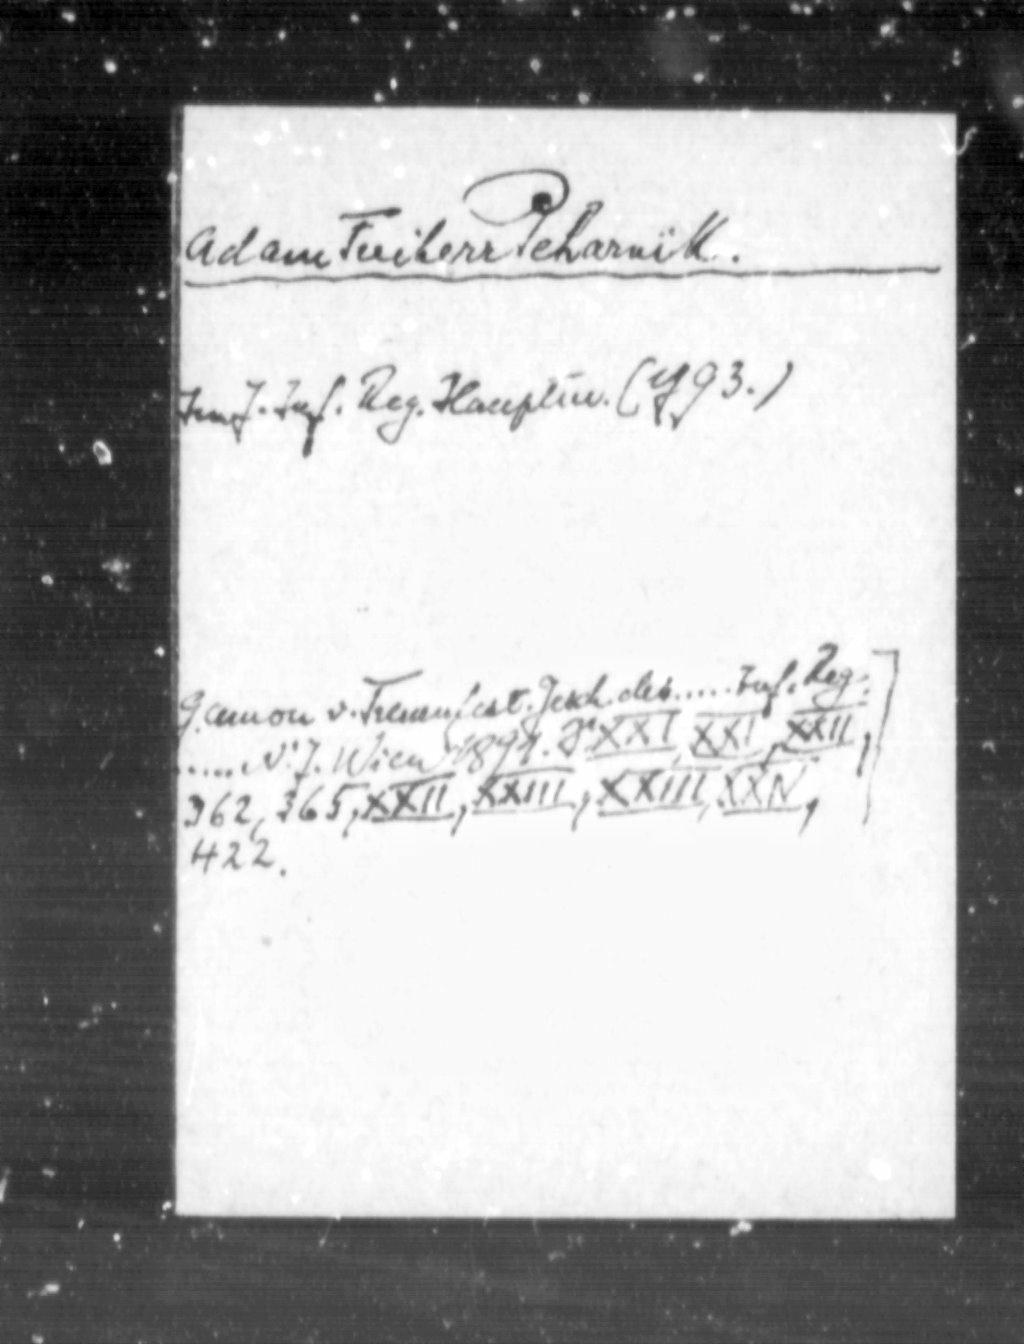 Adam Freiherr Peharnik.
Im 7. Inf. Reg. Hauptm. (1793.)
Amon v. Treuenfest. Gesch. des ..... Inf. Reg.
..... Nr. 7. Wien 1891. S. XXI, XXI, XXII,
362, 365, XXII, XXIII, XXIII, XXIV,
422.